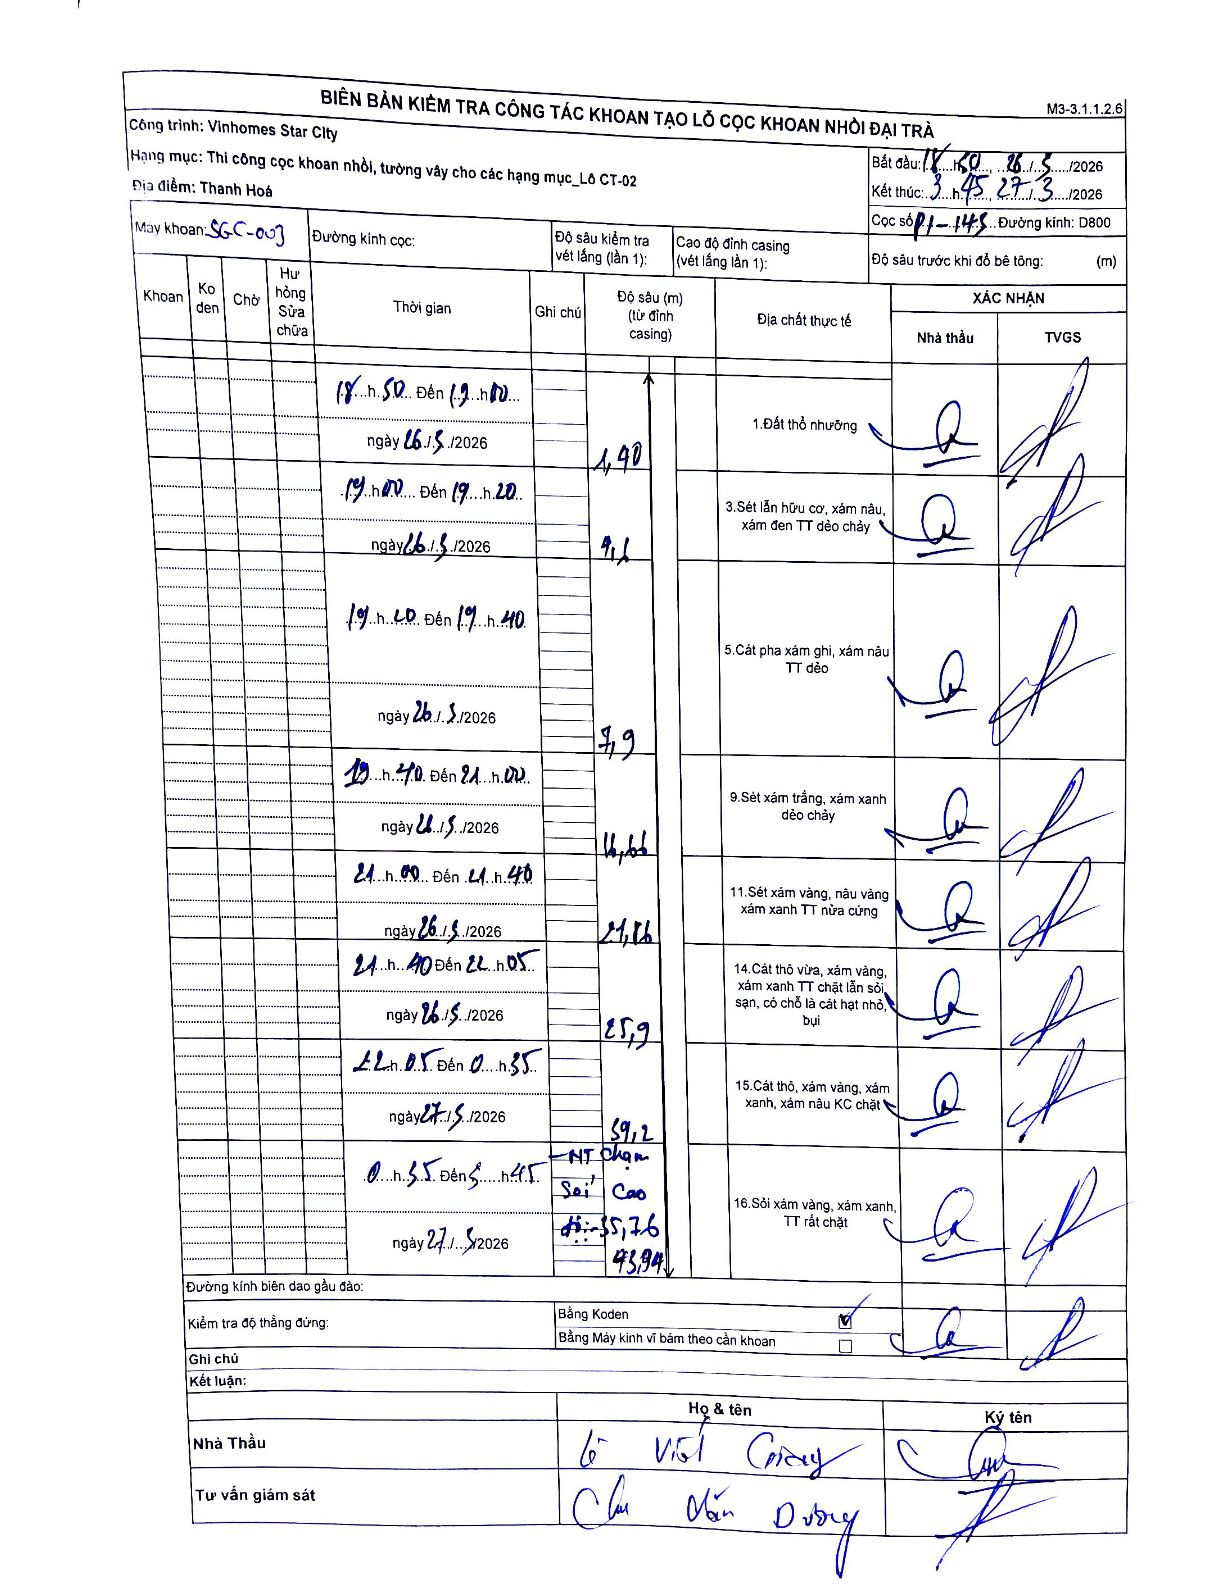 BIÊN BẢN KIỂM TRA CÔNG TÁC KHOAN TẠO LỖ CỌC KHOAN NHỒI ĐẠI TRÀ
M3-3.1.1.2.6
Công trình: Vinhomes Star City
Hạng mục: Thi công cọc khoan nhồi, tường vây cho các hạng mục_Lô CT-02
Địa điểm: Thanh Hoá
Bắt đầu: 18 h 50, 26/3/2026
Kết thúc: 3 h 45, 27/3/2026
Cọc số P1-143 Đường kính: D800
Máy khoan: SGC-003
Đường kính cọc:
Độ sâu kiểm tra vét lắng (lần 1):
Cao độ đỉnh casing (vét lắng lần 1):
Độ sâu trước khi đổ bê tông: (m)
Khoan
Ko den
Chờ
Hư hỏng Sửa chữa
Thời gian
Ghi chú
Độ sâu (m) (từ đỉnh casing)
Địa chất thực tế
XÁC NHẬN
Nhà thầu
TVGS
18 h 50 Đến 19 h 00
ngày 26/3/2026
1,40
1.Đất thổ nhưỡng
19 h 00 Đến 19 h 20
ngày 26/3/2026
3.Sét lẫn hữu cơ, xám nâu, xám đen TT dẻo chảy
19 h 20 Đến 19 h 40
ngày 26/3/2026
7,9
5.Cát pha xám ghi, xám nâu TT dẻo
19 h 40 Đến 21 h 00
ngày 26/3/2026
16,66
9.Sét xám trắng, xám xanh dẻo chảy
21 h 00 Đến 21 h 40
ngày 26/3/2026
21,86
11.Sét xám vàng, nâu vàng xám xanh TT nửa cứng
21 h 40 Đến 22 h 05
ngày 26/3/2026
25,9
14.Cát thô vừa, xám vàng, xám xanh TT chặt lẫn sỏi sạn, có chỗ là cát hạt nhỏ, bụi
22 h 05 Đến 0 h 35
ngày 27/3/2026
39,2
15.Cát thô, xám vàng, xám xanh, xám nâu KC chặt
0 h 35 Đến 3 h 45
ngày 27/3/2026
- NT Chạm
Sỏi Cao
độ: -35,76
43,94
16.Sỏi xám vàng, xám xanh, TT rất chặt
Đường kính biên dao gầu đào:
Kiểm tra độ thẳng đứng:
Bằng Koden
Bằng Máy kinh vĩ bám theo cần khoan
Ghi chú
Kết luận:
Họ & tên
Ký tên
Nhà Thầu
Lê Viết Cường
Tư vấn giám sát
Chu Văn Dương